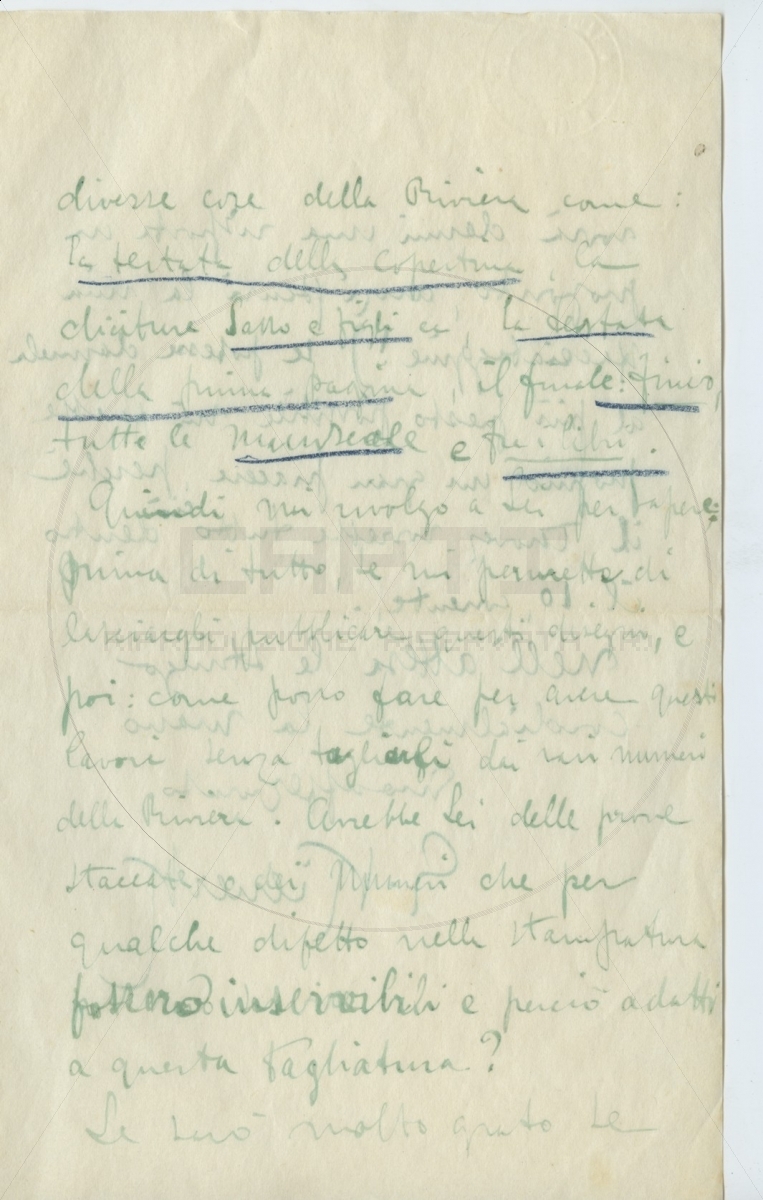 diverse cose della Riviera come:
la testata della copertina, la
dicitura Sasso e figli ea la testata
della prima pagina, il finale: finis,
tutte le mensole e fra i libri.
Quindi mi rivolgo a Lei per sapere:
prima di tutto se mi permette di
lasciargli pubblicare questi disegni, e
poi: come posso fare per avere questi
lavori senza tagliarli dai vari numeri
della Riviera. Avrebbe Lei delle prove
staccate o dei numeri che per
qualche difetto nella stampatura
fossero inservibili e perciò adatti
a questa tagliatura?
Le sarò molto grato se
CARTE
RIPRODUZIONE RISERVATA